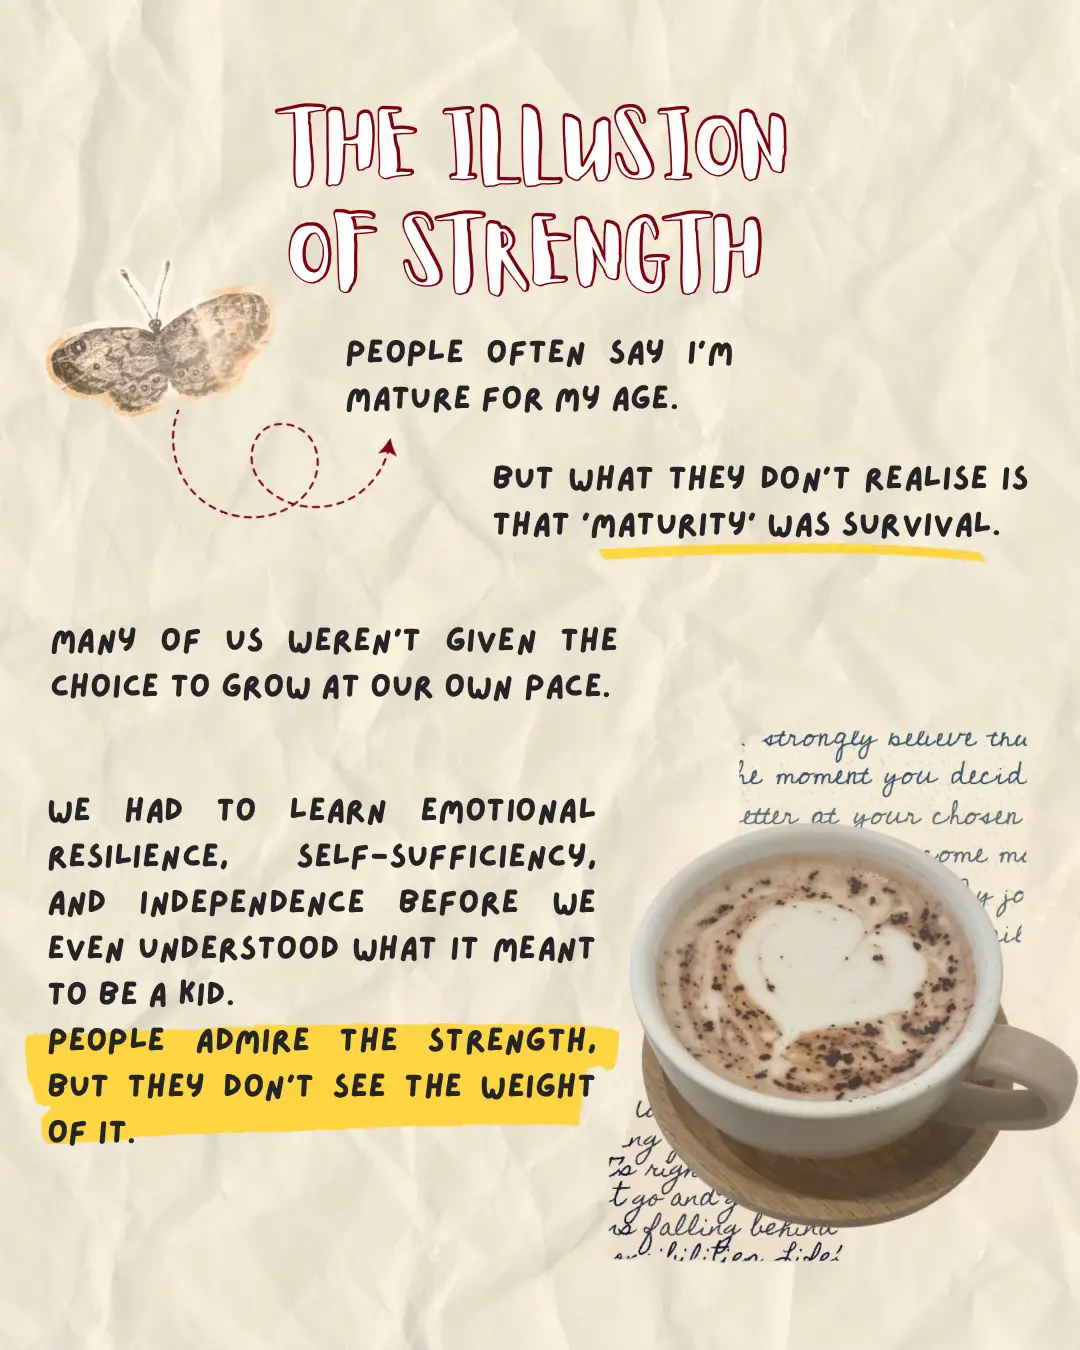 THE ILLUSION
OF STRENGTH
PEOPLE OFTEN SAY I'M
MATURE FOR MY AGE.
BUT WHAT THEY DON'T REALISE IS
THAT 'MATURITY' WAS SURVIVAL.
MANY OF US WEREN'T GIVEN THE
CHOICE TO GROW AT OUR OWN PACE.
WE HAD TO LEARN EMOTIONAL
RESILIENCE, SELF-SUFFICIENCY,
AND INDEPENDENCE BEFORE WE
EVEN UNDERSTOOD WHAT IT MEANT
TO BE A KID.
PEOPLE ADMIRE THE STRENGTH,
BUT THEY DON'T SEE THE WEIGHT
OF IT.
strongly believe
moment you decid
etter at your chosen
ome
jo
ng
right
t go and
is falling behind